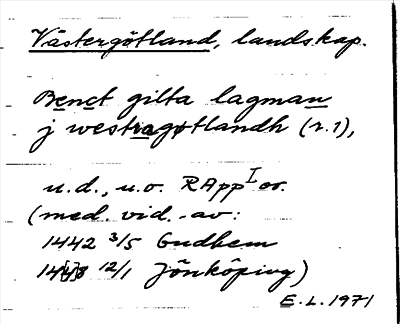 Västergötland, landskap.
Benct gilta lagman
j westragøtlandh (r.1),
u.d., u.o. RApp I or.
(med. vid. av:
1442 3/5 Gudhem
12/1 Jönköping)
E.L. 1971